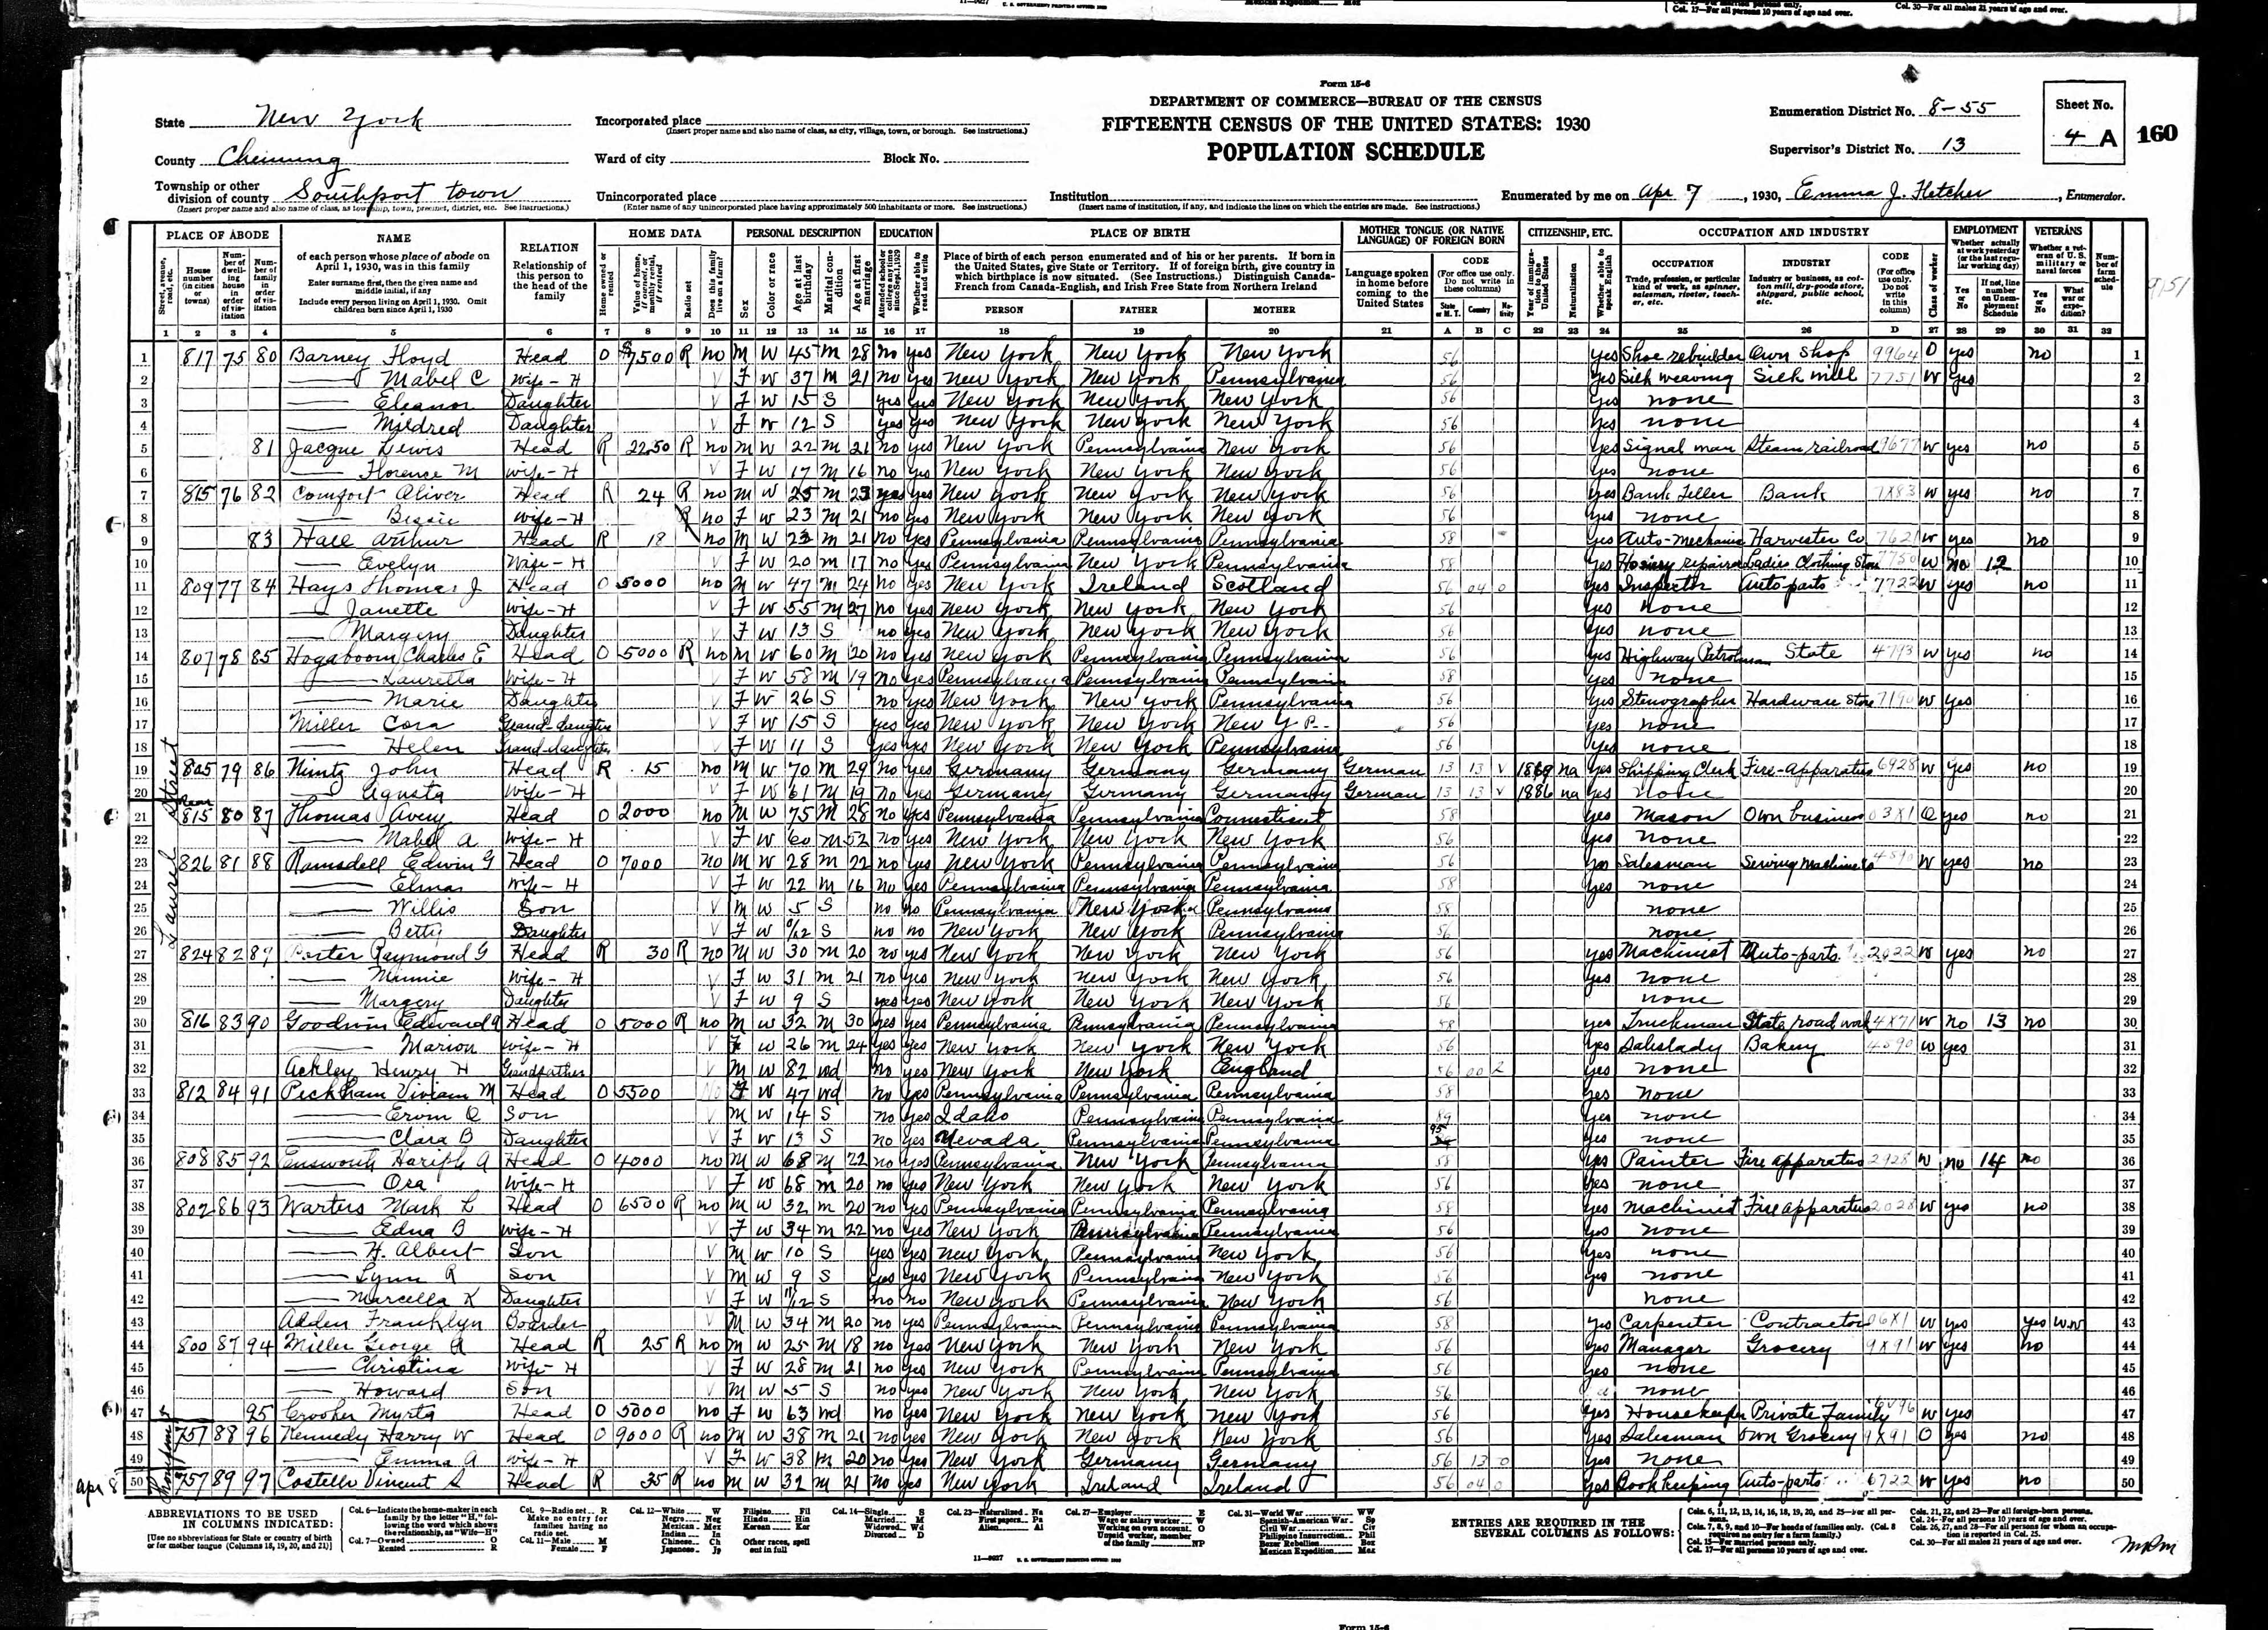 Form 15-6
DEPARTMENT OF COMMERCE—BUREAU OF THE CENSUS
FIFTEENTH CENSUS OF THE UNITED STATES: 1930
POPULATION SCHEDULE
State New York
County Chemung
Township or other division of county Southport town
(Insert proper name and also name of class, as township, town, precinct, district, etc. See instructions.)
Incorporated place
(Insert proper name and also name of class, as city, village, town, or borough. See instructions.)
Ward of city Block No.
Unincorporated place
(Enter name of any unincorporated place having approximately 500 inhabitants or more. See instructions.)
Institution
(Insert name of institution, if any, and indicate the lines on which the entries are made. See instructions.)
Enumeration District No. 8-55
Supervisor's District No. 13
Sheet No. 4 A 160
Enumerated by me on Apr 7, 1930, Emma J. Fletcher, Enumerator.
PLACE OF ABODE NAME RELATION HOME DATA PERSONAL DESCRIPTION EDUCATION PLACE OF BIRTH MOTHER TONGUE (OR NATIVE LANGUAGE) OF FOREIGN BORN CITIZENSHIP, ETC. OCCUPATION AND INDUSTRY EMPLOYMENT VETERANS
Laurel Street
1 817 75 80 Barney Floyd Head O $7500 R no M W 45 M 28 no yes New York New York New York 56 yes Shoe rebuilder Own Shop 9964 O yes no 1
2 Mabel C Wife-H V F W 37 M 21 no yes New York New York Pennsylvania 56 yes Silk weaving Silk mill 7751 W yes 2
3 Eleanor Daughter V F W 15 S yes yes New York New York New York 56 yes none 3
4 Mildred Daughter V F W 12 S yes yes New York New York New York 56 yes none 4
5 81 Jacque Lewis Head R 22.50 R no M W 22 M 21 no yes New York Pennsylvania New York 56 yes Signal man Steam railroad 9677 W yes no 5
6 Florence M Wife-H V F W 17 M 16 no yes New York New York New York 56 yes none 6
7 815 76 82 Comfort Oliver Head R 24 R no M W 25 M 23 yes yes New York New York New York 56 yes Bank Teller Bank 7X83 W yes no 7
8 Bessie Wife-H R no F W 23 M 21 no yes New York New York New York 56 yes none 8
9 83 Hall Arthur Head R 18 no M W 23 M 21 no yes Pennsylvania Pennsylvania Pennsylvania 58 yes Auto-mechanic Harvester Co 7621 W yes no 9
10 Evelyn Wife-H V F W 20 M 17 no yes Pennsylvania New York Pennsylvania 58 yes Hosiery repairer Ladies Clothing Store 7750 W no 12 10
11 809 77 84 Hays Thomas J Head O 5000 no M W 47 M 24 no yes New York Ireland Scotland 56 04 0 yes Inspector Auto parts 7722 W yes no 11
12 Janette Wife-H V F W 55 M 27 no yes New York New York New York 56 yes none 12
13 Margery Daughter V F W 13 S no yes New York New York New York 56 yes none 13
14 807 78 85 Hogaboom Charles E Head O 5000 R no M W 60 M 20 no yes New York Pennsylvania Pennsylvania 56 yes Highway Patrolman State 4793 W yes no 14
15 Lauretta Wife-H V F W 58 M 19 no yes Pennsylvania Pennsylvania Pennsylvania 58 yes none 15
16 Marie Daughter V F W 26 S no yes New York New York Pennsylvania 56 yes Stenographer Hardware Store 7190 W yes 16
17 Miller Cora Grand-daughter V F W 15 S yes yes New York New York New Y P 56 yes none 17
18 Helen Grand-daughter V F W 11 S yes yes New York New York Pennsylvania 56 yes none 18
19 805 79 86 Nintz John Head R 15 no M W 70 M 29 no yes Germany Germany Germany German 13 13 V 1869 na yes Shipping Clerk Fire-Apparatus 6928 W yes no 19
20 Agusta Wife-H V F W 61 M 19 no yes Germany Germany Germany German 13 13 V 1886 na yes none 20
21 Rear 815 80 87 Thomas Avery Head O 2000 no M W 75 M 28 no yes Pennsylvania Pennsylvania Connecticut 58 yes Mason Own business 03X1 O yes no 21
22 Mabel A Wife-H V F W 60 M 52 no yes New York New York New York 56 yes none 22
23 826 81 88 Ramsdell Edwin G Head O 7000 no M W 28 M 22 no yes New York Pennsylvania Pennsylvania 56 yes Salesman Sewing Machine Co 4590 W yes no 23
24 Elma Wife-H V F W 22 M 16 no yes Pennsylvania Pennsylvania Pennsylvania 58 yes none 24
25 Willis Son V M W 5 S no no Pennsylvania New York Pennsylvania 58 none 25
26 Betty Daughter V F W 0/12 S no no New York New York Pennsylvania 56 none 26
27 824 82 89 Porter Raymond G Head R 30 R no M W 30 M 20 no yes New York New York New York 56 yes Machinist Auto-parts 2022 W yes no 27
28 Minnie Wife-H V F W 31 M 21 no yes New York New York New York 56 yes none 28
29 Margery Daughter V F W 9 S yes yes New York New York New York 56 none 29
30 816 83 90 Goodwin Edward A Head O 5000 R no M W 32 M 30 yes yes Pennsylvania Pennsylvania Pennsylvania 58 yes Truckman State road work 4X71 W no 13 no 30
31 Marion Wife-H V F W 26 M 24 yes yes New York New York New York 56 yes Saleslady Bakery 4590 W yes 31
32 Ackley Henry H Grandfather V M W 82 Wd no yes New York New York England 56 00 2 yes none 32
33 812 84 91 Peckham Viviam M Head O 5500 No F W 47 Wd no yes Pennsylvania Pennsylvania Pennsylvania 58 yes none 33
34 Ervin O Son V M W 14 S no yes Idaho Pennsylvania Pennsylvania 89 yes none 34
35 Clara B Daughter V F W 13 S no yes Nevada Pennsylvania Pennsylvania 95 yes none 35
36 808 85 92 Ensworth Hariph A Head O 4000 no M W 68 M 22 no yes Pennsylvania New York Pennsylvania 58 yes Painter Fire apparatus 2928 W no 14 no 36
37 Ora Wife-H V F W 68 M 20 no yes New York New York New York 56 yes none 37
38 802 86 93 Warters Mark L Head O 6500 R no M W 32 M 20 no yes Pennsylvania Pennsylvania Pennsylvania 58 yes Machinist Fire apparatus 2028 W yes no 38
39 Edna B Wife-H V F W 34 M 22 no yes New York Pennsylvania Pennsylvania 56 yes none 39
40 H. Albert Son V M W 10 S yes yes New York Pennsylvania New York 56 yes none 40
41 Lynn R Son V M W 9 S yes yes New York Pennsylvania New York 56 yes none 41
42 Marcella K Daughter V F W 11/12 S no no New York Pennsylvania New York 56 none 42
43 Adden Franklyn Boarder V M W 34 M 20 no yes Pennsylvania Pennsylvania Pennsylvania 58 yes Carpenter Contractor 06X1 W yes yes WW 43
44 800 87 94 Miller George R Head R 25 R no M W 25 M 18 no yes New York New York New York 56 yes Manager Grocery 9X91 W yes no 44
45 Christina Wife-H V F W 28 M 21 no yes New York Pennsylvania Pennsylvania 56 yes none 45
46 Howard Son V M W 5 S no yes New York New York New York 56 none 46
47 95 Crooker Myrta Head O 5000 no F W 63 Wd no yes New York New York New York 56 yes Housekeeper Private Family W yes 47
48 757 88 96 Kennedy Harry W Head O 9000 R no M W 38 M 21 no yes New York New York New York 56 yes Salesman Own Grocery 9X91 O yes no 48
49 Emma A Wife-H V F W 38 M 20 no yes New York Germany Germany 56 13 0 yes none 49
Apr 8 50 757 89 97 Costello Vincent S Head R 35 R no M W 32 M 21 no yes New York Ireland Ireland 56 04 0 yes Bookkeeping Auto-parts 6722 W yes no 50
ABBREVIATIONS TO BE USED IN COLUMNS INDICATED:
[Use no abbreviations for State or country of birth or for mother tongue (Columns 18, 19, 20, and 21)]
ENTRIES ARE REQUIRED IN THE SEVERAL COLUMNS AS FOLLOWS:
Form 15-6